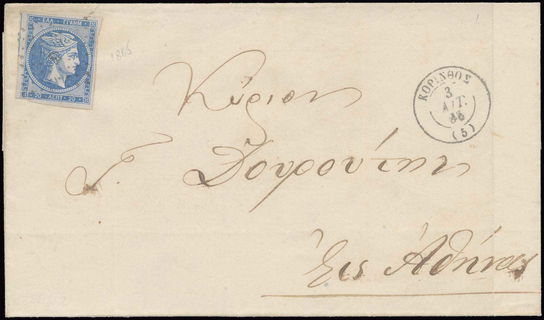 ΕΛΛ. ΓΡΑΜΜ.
20 ΛΕΠΤ. 20
1865
ΚΟΡΙΝΘΟΣ
3
ΑΥΓ.
66
(5)
Κύριον
Γ. Δουρούτην
Εἰς Ἀθήνας